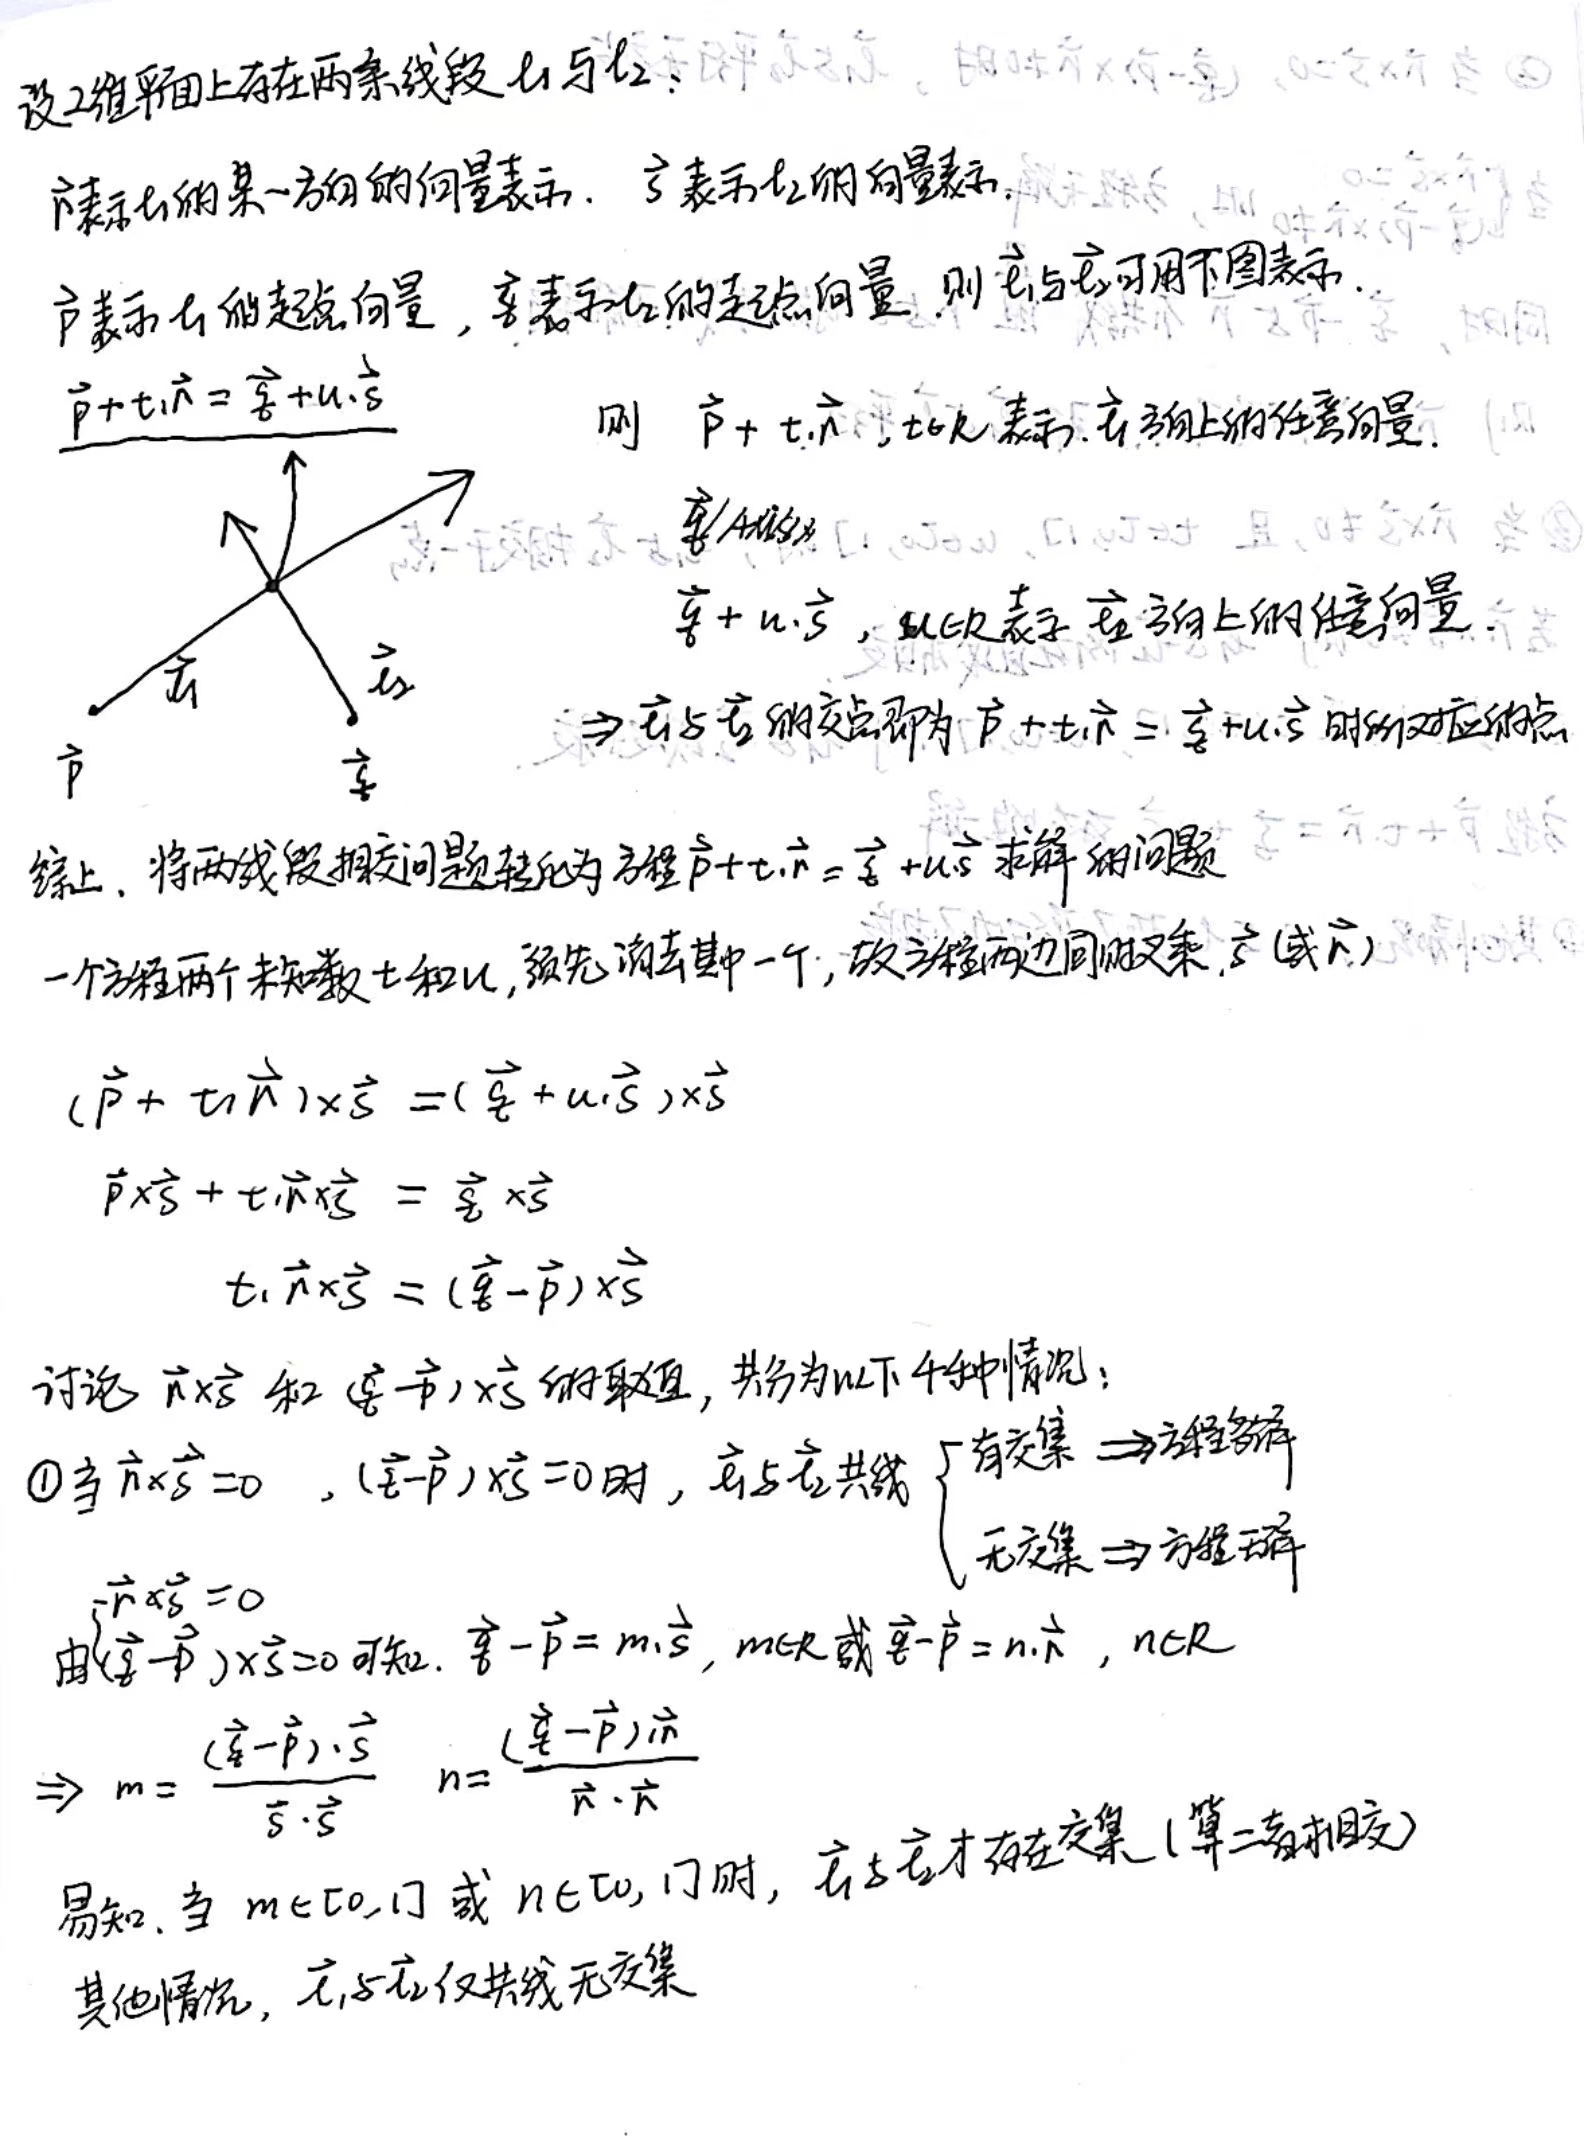 设2维平面上存在两条线段 l₁与l₂:
r⃗表示l₁的某一方向的向量表示. s⃗ 表示l₂的向量表示.
p⃗表示l₁的起点向量, q⃗表示l₂的起点向量. 则 l⃗₁与l⃗₂可用下图表示.
p⃗+t·r⃗=q⃗+u·s⃗
则 p⃗+t·r⃗, t∈R 表示 l⃗₁方向上的任意向量.
q⃗+u·s⃗, u∈R表示 l⃗₂方向上的任意向量.
l⃗₁
l⃗₂
⇒ l⃗₁与l⃗₂的交点即为 p⃗+t·r⃗=q⃗+u·s⃗ 时所对应的点
p⃗
q⃗
综上. 将两线段相交问题转化为方程p⃗+t·r⃗=q⃗+u·s⃗ 求解的问题
一个方程两个未知数t和u, 须先消去其中一个, 故方程两边同时叉乘 s⃗ (或 r⃗)
(p⃗+t·r⃗)×s⃗=(q⃗+u·s⃗)×s⃗
p⃗×s⃗+t·r⃗×s⃗=q⃗×s⃗
t·r⃗×s⃗=(q⃗-p⃗)×s⃗
讨论 r⃗×s⃗ 和 (q⃗-p⃗)×s⃗的取值, 共分为以下4种情况:
①当r⃗×s⃗=0, (q⃗-p⃗)×s⃗=0时, l⃗₁与l⃗₂共线 { 有交集 ⇒方程多解
无交集⇒方程无解
r⃗×s⃗=0
由{(q⃗-p⃗)×s⃗=0可知. q⃗-p⃗=m·s⃗, m∈R或q⃗-p⃗=n·r⃗, n∈R
⇒ m=(q⃗-p⃗)·s⃗/s⃗·s⃗ n=(q⃗-p⃗)·r⃗/r⃗·r⃗
易知. 当 m∈[0,1] 或 n∈[0,1]时, l⃗₁与l⃗₂才存在交集 (算二者相交)
其他情况, l⃗₁与l⃗₂仅共线无交集